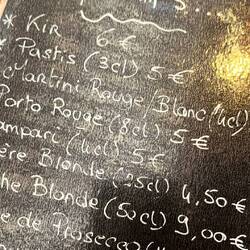 * KIR 6 €
* Pastis (3cl) 5 €
Martini Rouge/Blanc (4cl)
Porto Rouge (8cl) 5 €
ampari (4cl) 5 €
ère Blonde (25cl) 4,50 €
he Blonde (50cl) 9,00 €
e de Prosecco